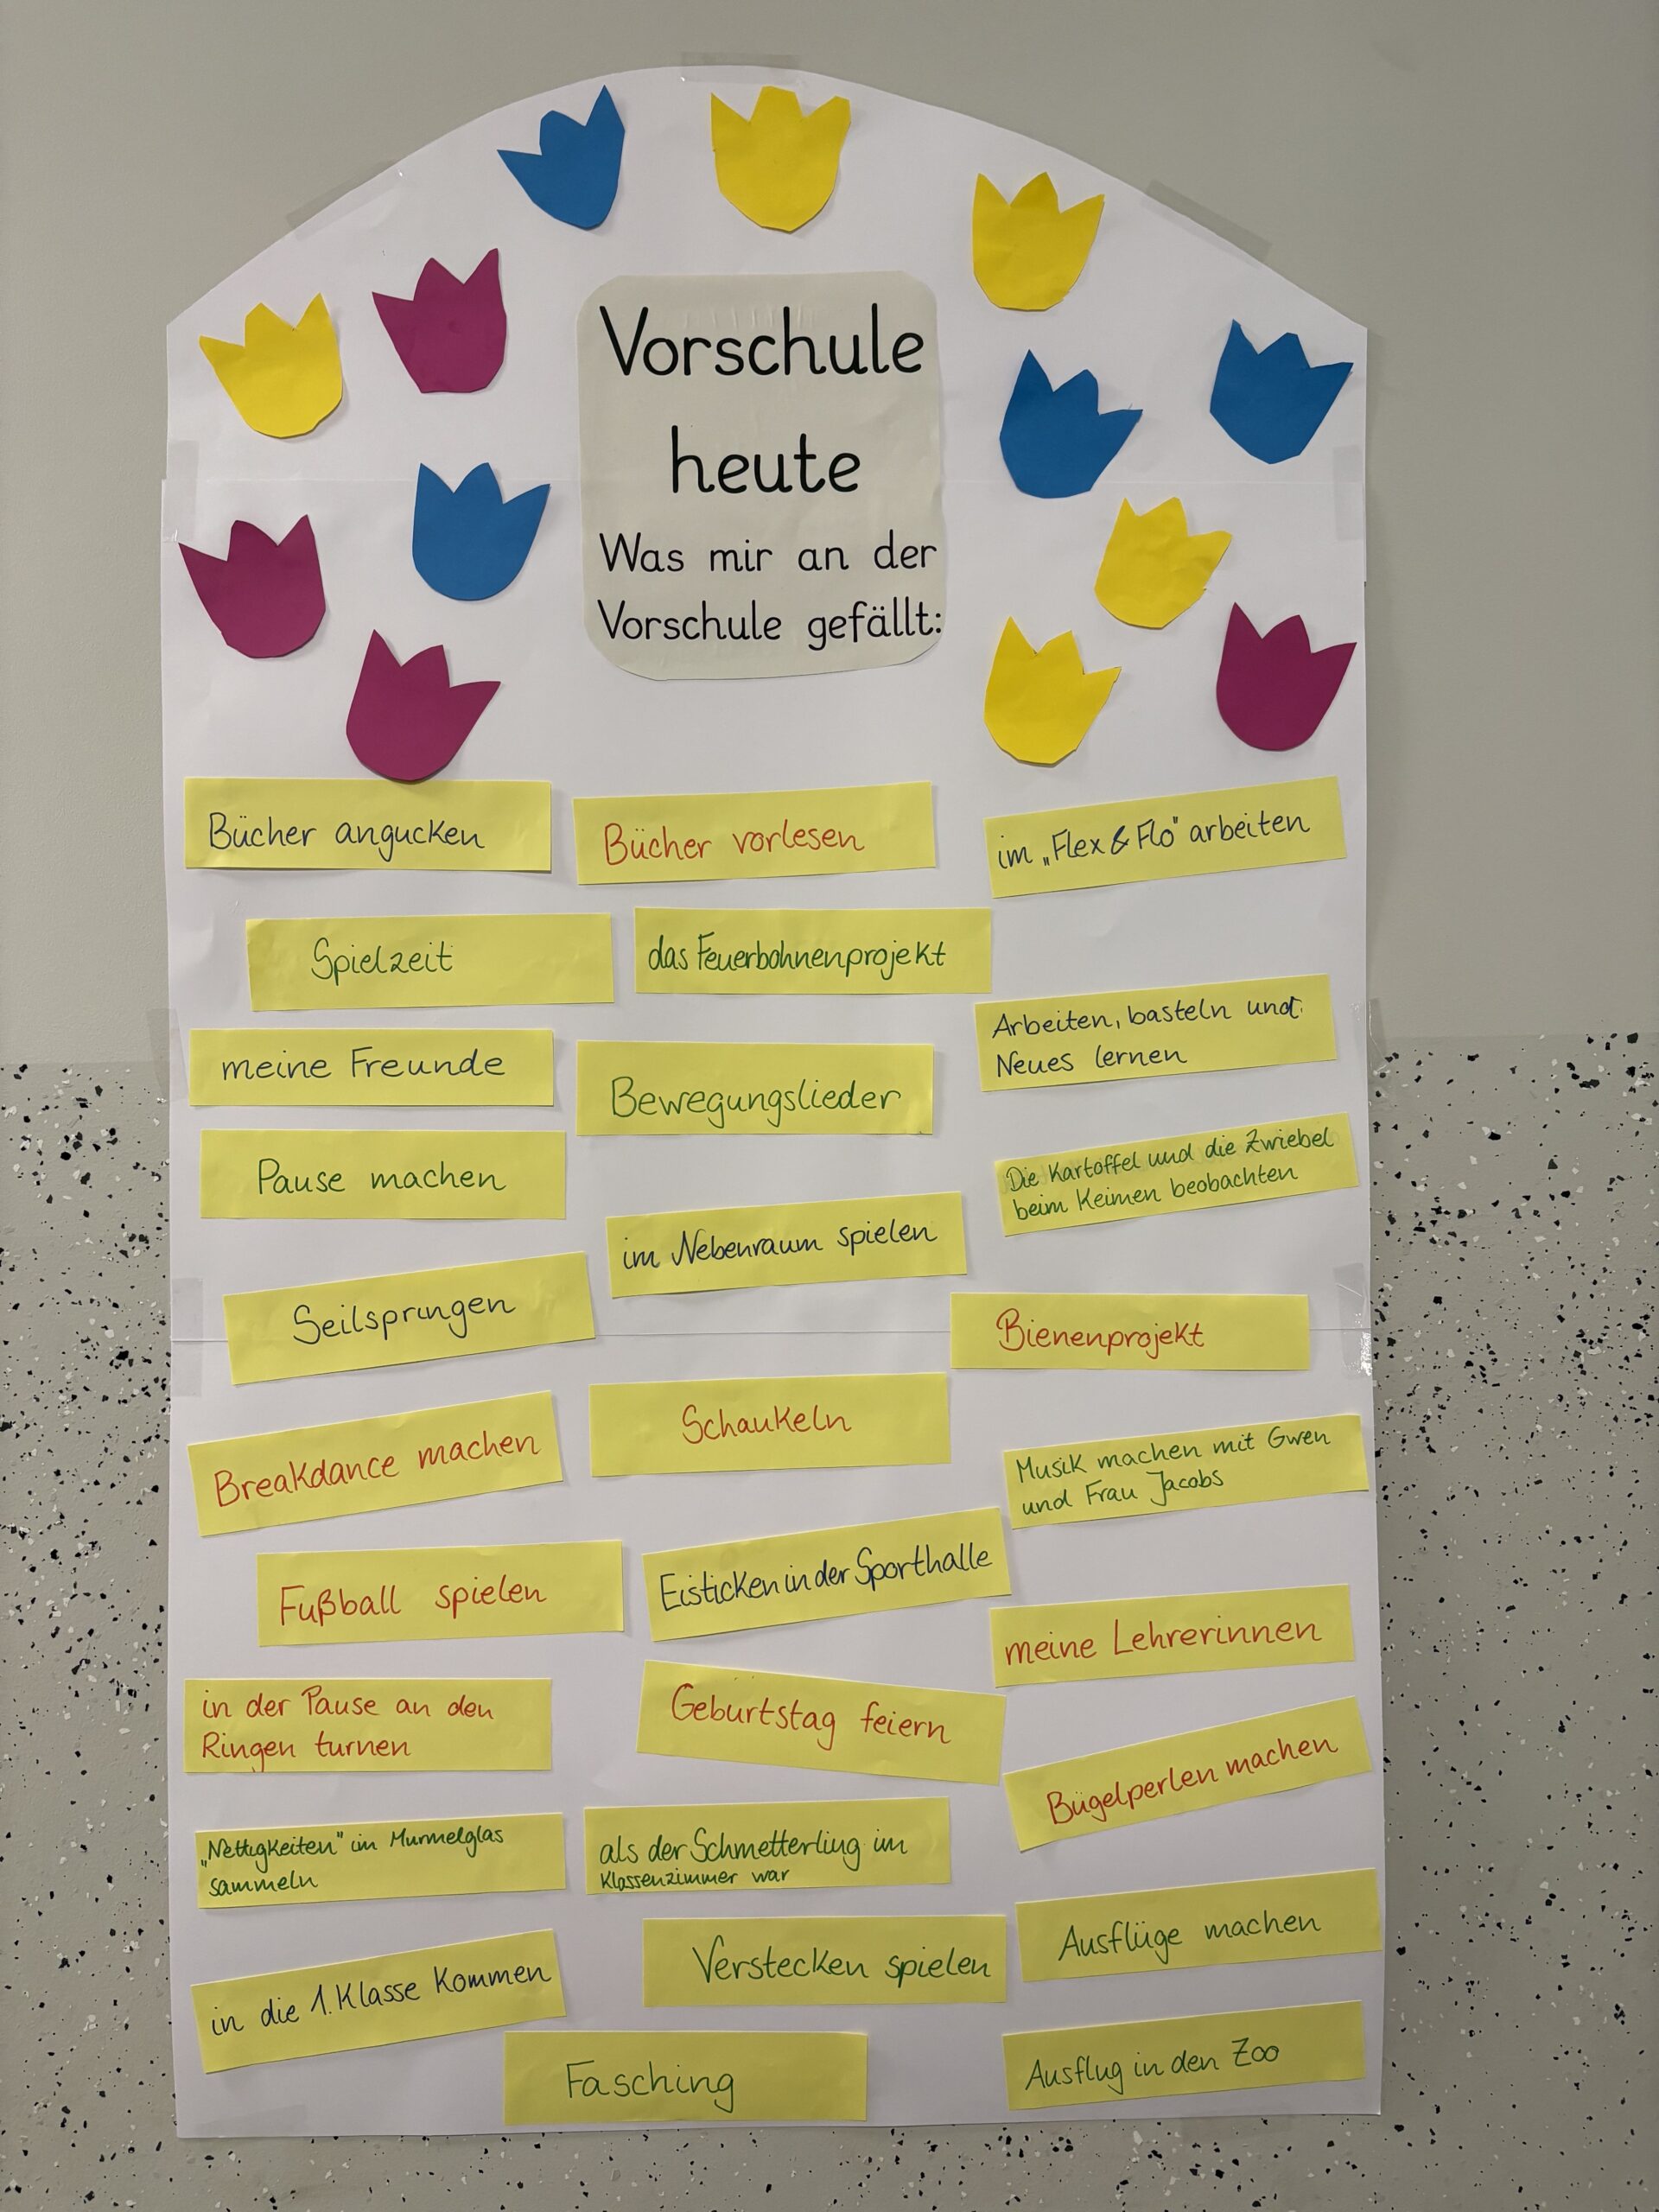 Vorschule
heute
Was mir an der
Vorschule gefällt:
Bücher angucken
Bücher vorlesen
im „Flex & Flo" arbeiten
Spielzeit
das Feuerbohnenprojekt
Arbeiten, basteln und
Neues lernen
meine Freunde
Bewegungslieder
Pause machen
Die Kartoffel und die Zwiebel
beim Keimen beobachten
im Nebenraum spielen
Seilspringen
Bienenprojekt
Breakdance machen
Schaukeln
Musik machen mit Gwen
und Frau Jacobs
Fußball spielen
Eisticken in der Sporthalle
meine Lehrerinnen
in der Pause an den
Ringen turnen
Geburtstag feiern
Bügelperlen machen
„Nettigkeiten" im Murmelglas
sammeln
als der Schmetterling im
Klassenzimmer war
Ausflüge machen
in die 1. Klasse kommen
Verstecken spielen
Fasching
Ausflug in den Zoo